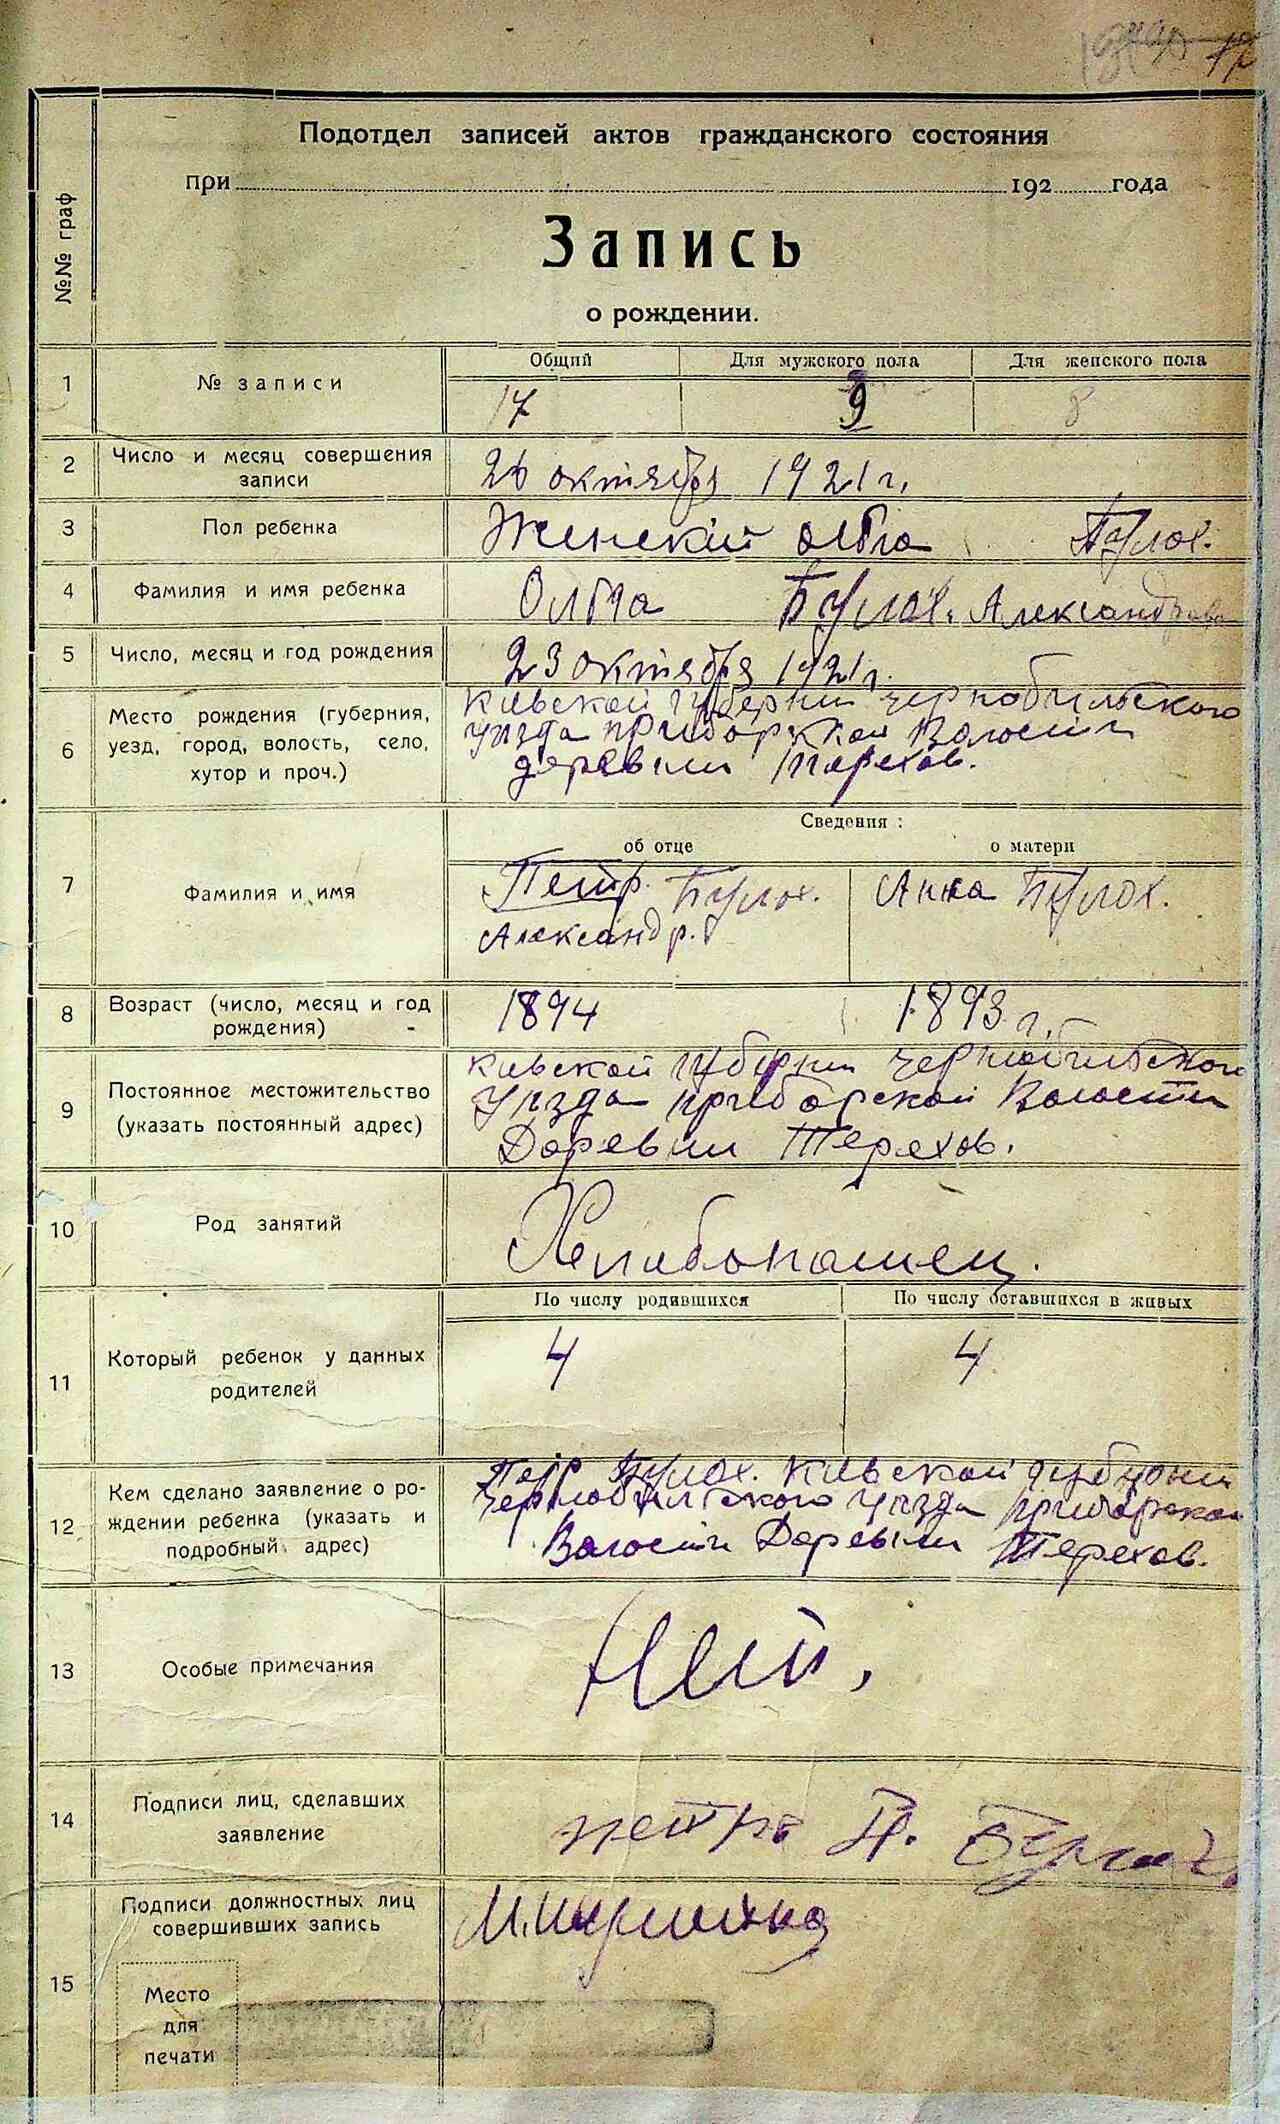 Подотдел записей актов гражданского состояния
при 192 года
Запись
о рождении.
№№ граф
1
№ записи
Общий
Для мужского пола
Для женского пола
17
9
8
2
Число и месяц совершения
записи
26 октября 1921 г.
3
Пол ребенка
Женский Ольга Булох.
4
Фамилия и имя ребенка
Ольга Булох. Александрова
5
Число, месяц и год рождения
23 октября 1921 г.
6
Место рождения (губерния,
уезд, город, волость, село,
хутор и проч.)
Киевской губернии чернобыльского
уезда приборской Волости
деревыи Терехов.
Сведения:
об отце
о матери
7
Фамилия и имя
Петр. Булох.
Александр.
Анна Булох.
8
Возраст (число, месяц и год
рождения)
1894
1893 г.
9
Постоянное местожительство
(указать постоянный адрес)
Киевской губернии чернобыльского
уезда приборской Волости
Деревыи Терехов.
10
Род занятий
Хлебопашец.
11
Который ребенок у данных
родителей
По числу родившихся
По числу оставшихся в живых
4
4
12
Кем сделано заявление о ро-
ждении ребенка (указать и
подробный адрес)
Петр Булох. Киевской губернии
Чернобыльского уезда приборской
Волости Деревыи Терехов.
13
Особые примечания
Нет.
14
Подписи лиц, сделавших
заявление
петро П.
15
Подписи должностных лиц
совершивших запись
Место
для
печати